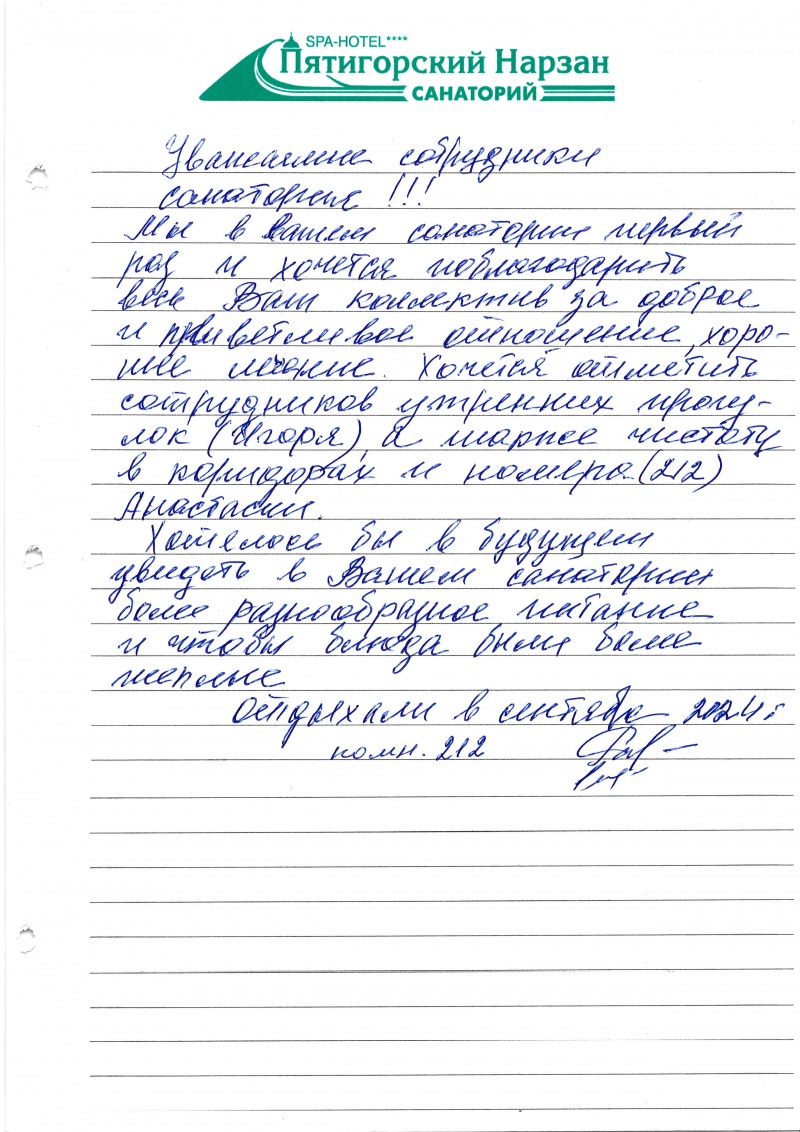 SPA-HOTEL****
Пятигорский Нарзан
САНАТОРИЙ
Уважаемые сотрудники
санатория !!!
Мы в вашем санатории первый
раз и хочется поблагодарить
весь Ваш коллектив за доброе
и приветливое отношение, хоро-
шее лечение. Хочется отметить
сотрудников утренних прогу-
лок (Игоря), а также чистоту
в коридорах и номера (212)
Анастасии.
Хотелось бы в будущем
увидеть в Вашем санатории
более разнообразное питание
и чтобы блюда были более
теплые
Отдыхали в сентябре 2024 г
комн. 212